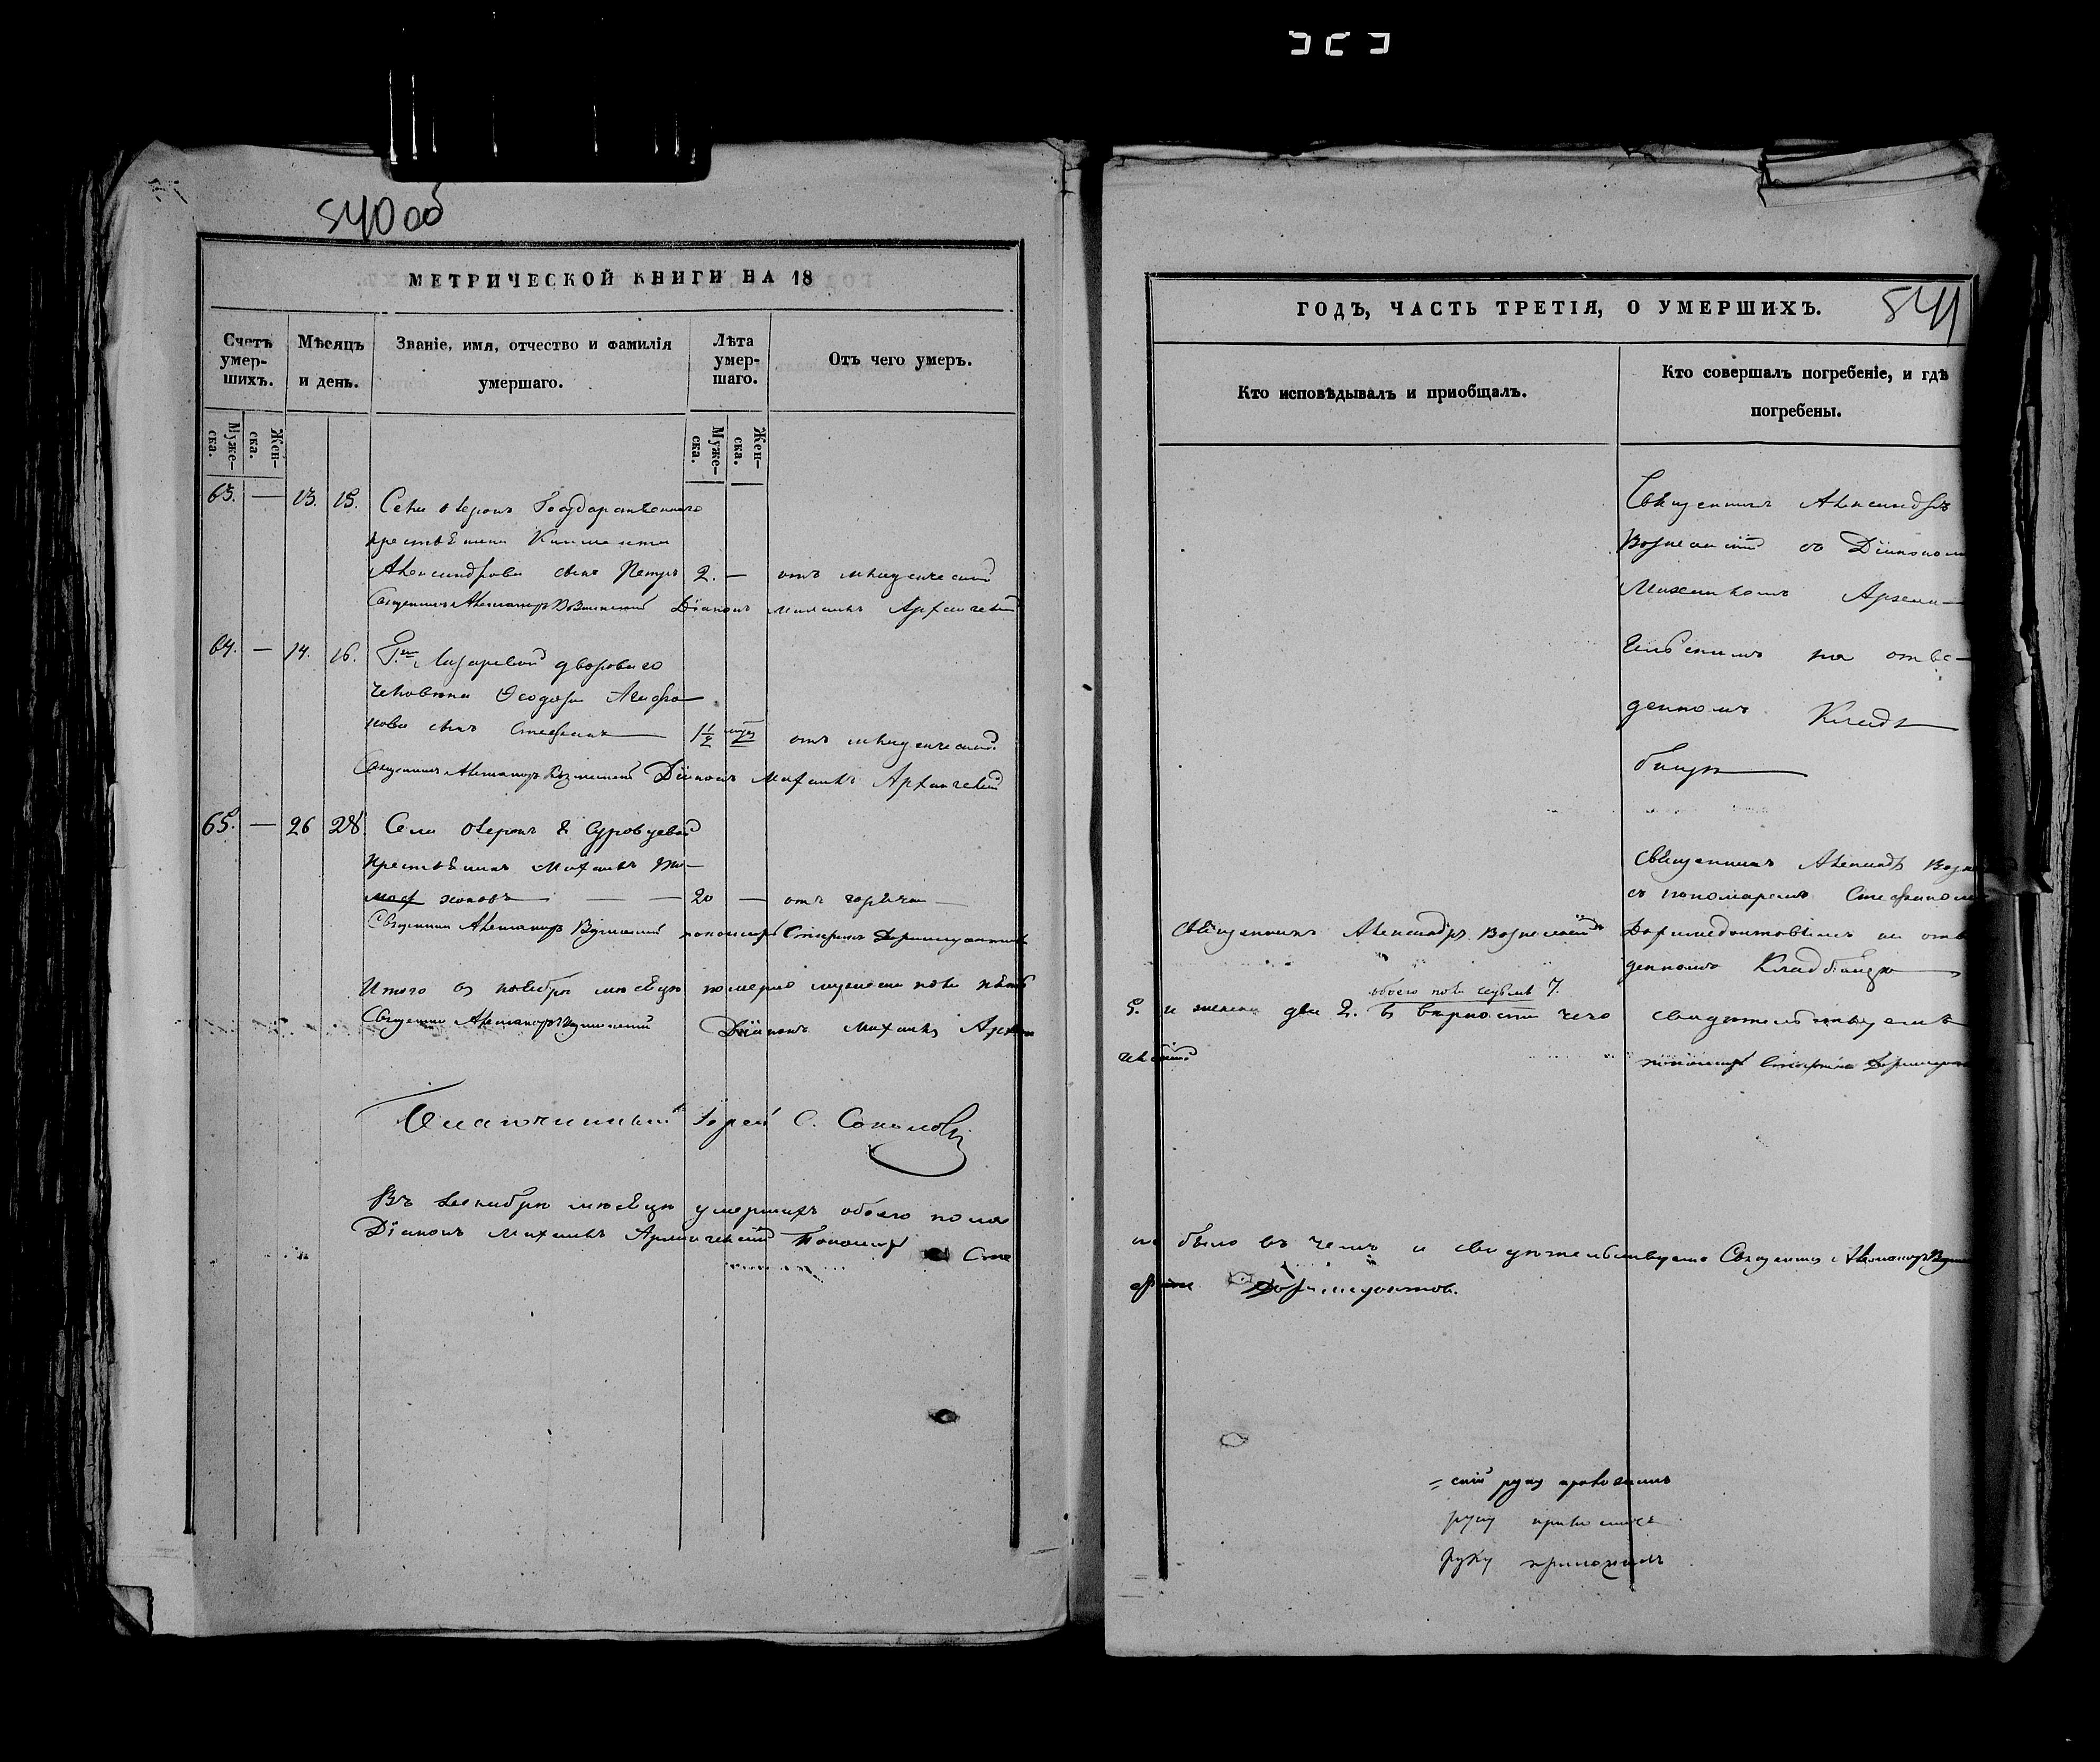 540 об
МЕТРИЧЕСКОЙ КНИГИ НА 18
Счетъ умер-шихъ.
Мѣсяцъ и день.
Званіе, имя, отчество и фамилія умершаго.
Лѣта умер-шаго.
Отъ чего умеръ.
Муже-ска.
Жен-ска.
Муже-ска.
Жен-ска.
63. — 13. 15. Села Государственнаго
крестьянина
Александрова сынъ Петръ 2. — отъ младенческой
Священникъ Александръ Вознесенскій Діаконъ Михаилъ Архангельскій
64. — 14. 16. Г. Лазаревой двороваго
человѣка Ѳеодора
нова сынъ Стефанъ 1½ отъ младенческой
Священникъ Александръ Вознесенскій Діаконъ Михаилъ Архангельскій
65. — 26 28 Села
крестьянинъ Михаилъ Ти-
моѳ — — 20 — отъ горячки
Священникъ Александръ Вознесенскій пономарь Стефанъ Доримедонтовъ
Итого въ ноябрѣ мѣсяцѣ померло мужеска пола пять
Священникъ Александръ Вознесенскій Діаконъ Михаилъ Архан
Благочинный Іерей С. Соколовъ
Въ декабрѣ мѣсяцѣ умершихъ обоего пола
Діаконъ Михаилъ Архангельскій Пономарь Сте
541
ГОДЪ, ЧАСТЬ ТРЕТІЯ, О УМЕРШИХЪ.
Кто исповѣдывалъ и приобщалъ.
Кто совершалъ погребеніе, и гдѣ погребены.
Священникъ Александръ
Вознесенскій со Діакономъ
Михаиломъ Архан-
гельскимъ на отве-
денномъ Клад-
бищѣ
Священникъ Александръ Возн
съ пономаремъ Стефаномъ
Священникъ Александръ Вознесенскій Доримедонтовымъ на отве
денномъ Кладбищѣ
обоего пола семь 7.
5. и женска два 2. Въ вѣрности чего свидѣтельствуемъ
гельскій пономарь Стефанъ Доримедонтовъ
не было въ чемъ и свидѣтельствуемъ Священникъ Александръ Вознесен
фанъ Доримедонтовъ.
= скій руку приложилъ
руку приложилъ
руку приложилъ